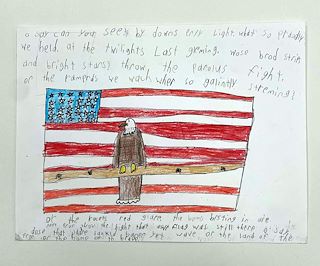 o say can your seey by downs erly Light. what so proudly
we held. at the twilights Last gleming. wose brod strip
and bright stars? throw the parolus fight.
or the ramperds we wach wher so galintly streming!
at the rocets red glare the bomb bersting in
threw the night that our flag was still there o say
dose that banner yet wave, or the land of the
free or the home of the brave